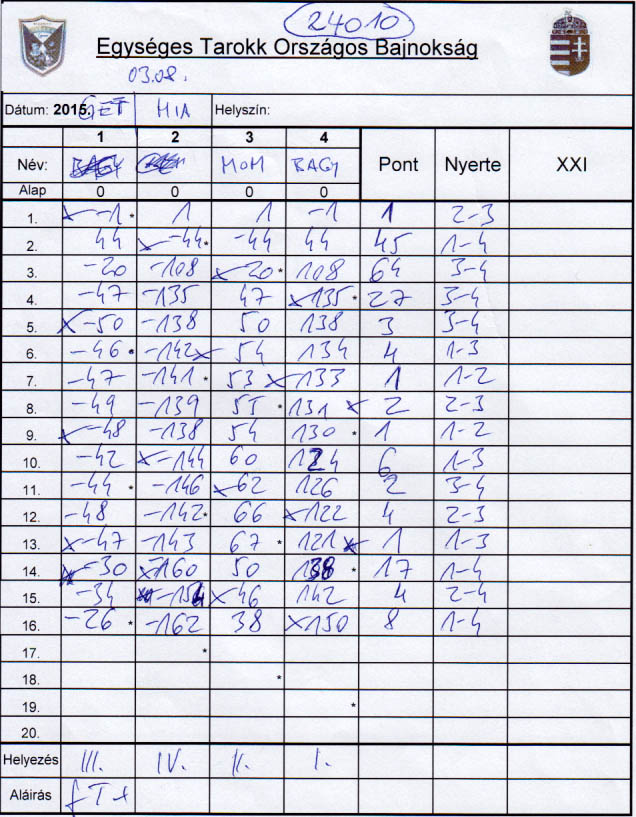 24010
Egységes Tarokk Országos Bajnokság
03.08.
Dátum: 2015. GET MIA Helyszín:
1 2 3 4
Név: BAGY MOM BAGY Pont Nyerte XXI
Alap 0 0 0 0
1. -1 * 1 1 -1 1 2-3
2. 44 -44 * -44 44 45 1-4
3. -20 -108 20 * 108 64 3-4
4. -47 -135 47 135 * 27 3-4
5. -50 -138 50 138 3 3-4
6. -46 * -142 54 134 4 1-3
7. -47 -141 * 53 133 1 1-2
8. -49 -139 55 * 131 2 2-3
9. -48 -138 54 130 * 1 1-2
10. -42 -144 60 124 6 1-3
11. -44 * -146 62 126 2 3-4
12. -48 -142 * 66 122 4 2-3
13. -47 -143 67 * 121 1 1-3
14. -30 -160 50 138 * 17 1-4
15. -34 -154 46 142 4 2-4
16. -26 * -162 38 150 8 1-4
17. *
18. *
19. *
20.
Helyezés III. IV. II. I.
Aláírás